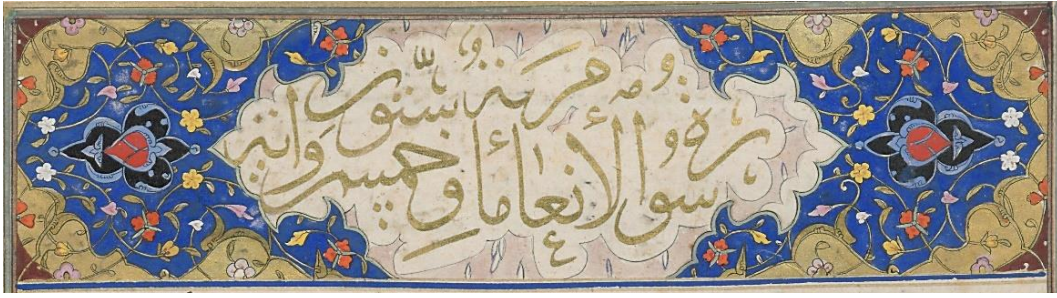 سورة الانعام مائة و خمس و ستون اية